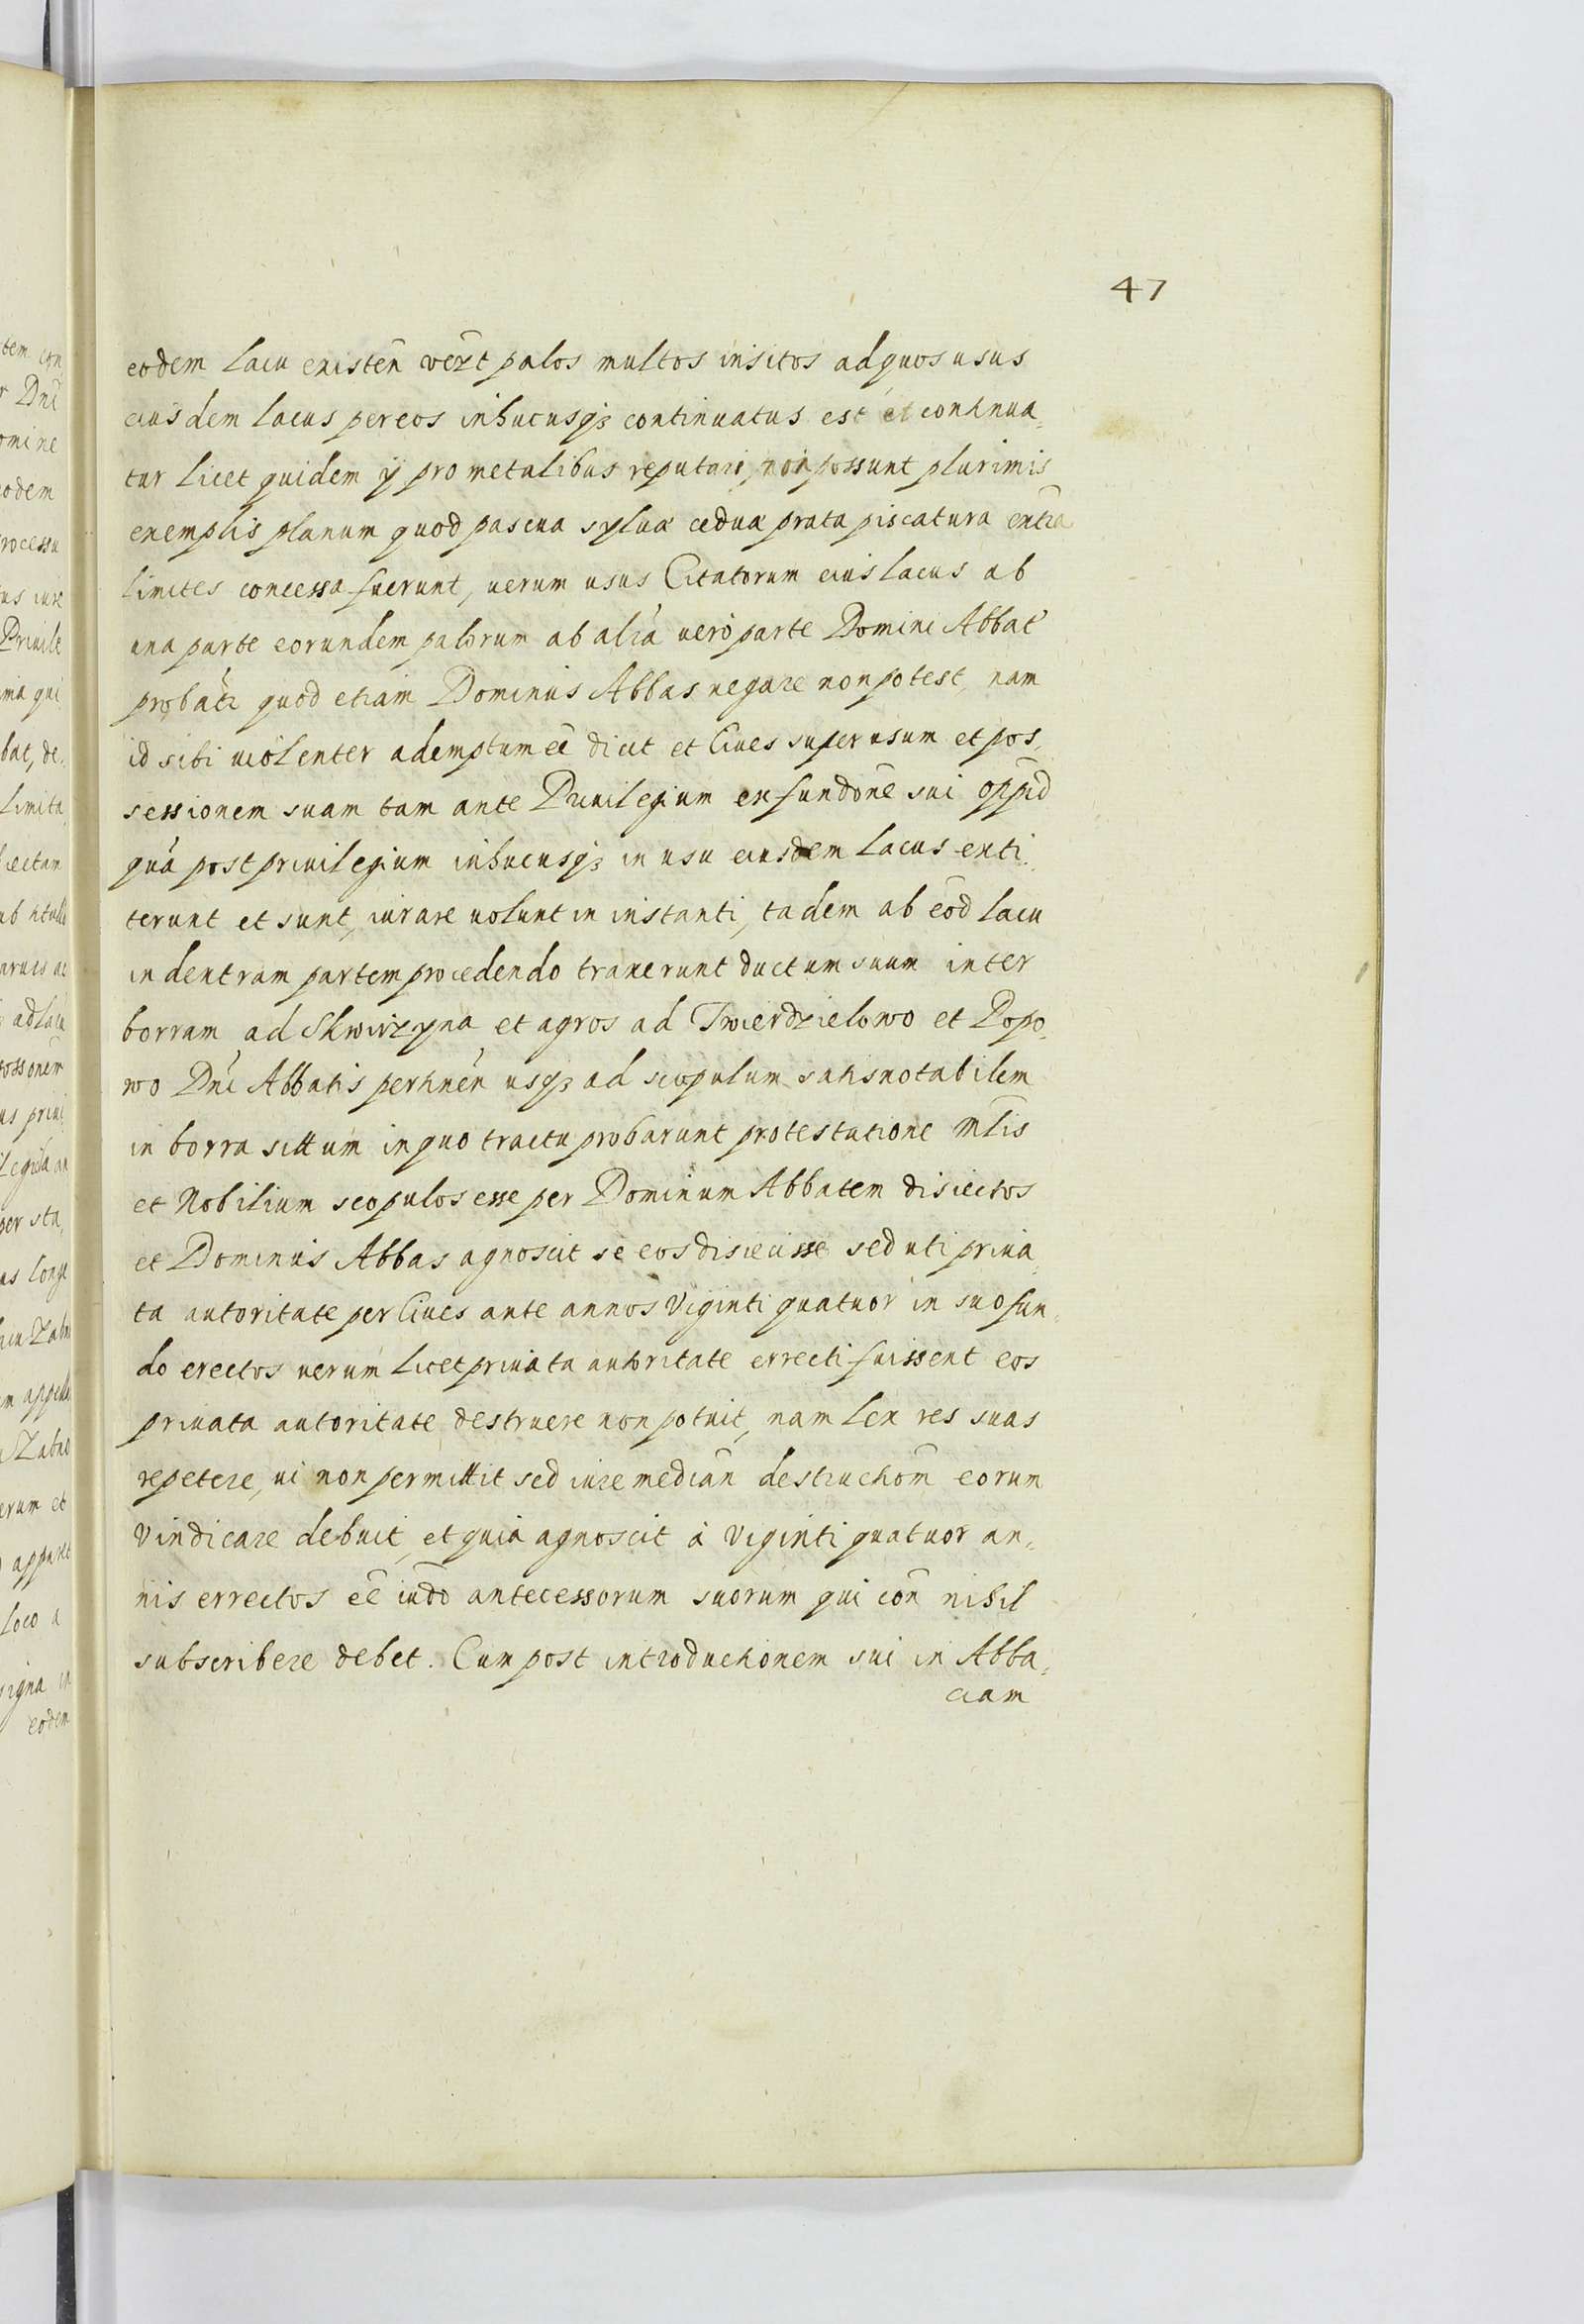 47
eodem lacu existen̄ ver̄t palos multos insitos ad quos usus
eiusdem lacus per eos inhucusq₃ continuatus est et continua„
tur licet quidem ij pro metalibus reputari non possunt plurimis
exemplis planum quod pascua sylua cedua prata piscatura ext̄ra
limites concessa fuerunt, uerum usus Citatorum eius lacus ab
una parte eorundem palorum ab alia uerò parte Domini Abbat
probati quod etiam Dominus Abbas negare non potest, nam
id sibi uiolenter ademptum eē dicit et Ciues super usum et pos„
sessionem suam tam ante Priuilegium ex fundōne sui opp̄id
quā post priuilegium inhucusq₃ in usu eiusdem lacus exti„
terunt et sunt, iurare uolunt in instanti, tadem ab eōd lacu
in dextram partem procedendo traxerunt ductum suum inter
borram ad Skwirzyna et agros ad Twierdzielowo et Popo„
wo Dn̄i Abbatis pertinen̄ usq₃ ad scopulum satis notabilem
in borra sittum in quo tractu probarunt protestatione Mt̄is
et Nobilium scopulos esse per Dominum Abbatem disiectos
et Dominus Abbas agnoscit se eos disiecisse sed uti priua„
ta autoritate per Ciues ante annos Viginti quatuor in suo fun„
do erectos uerum licet priuata autoritate errecti fuissent eos
priuata autoritate destruere non potuit, nam lex res suas
repetere, ui non permittit sed iure median̄ destructiom̄ eorum
Vindicare debuit, et quia agnoscit à Viginti quatuor an„
nis errectos eē iūdo antecessorum suorum qui con̄ nihil
subscribere debet. Cum post introductionem sui in Abba„
ciam